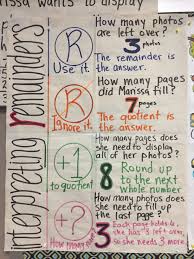 rissa wants to display
Interpreting remainders
R
Use it.
How many photos
are left over?
3 photos
The remainder is
the answer.
R
Ignore it.
How many pages
did Marissa fill?
7 pages
The quotient is
the answer.
+1
to quotient
How many pages
does she need to display
all of her photos?
8 Round up
to the next
whole number
+?
How many
How many photos
does she need to fill
up the last page?
3 Each page holds
she has 3 left over
so she needs 3 more.